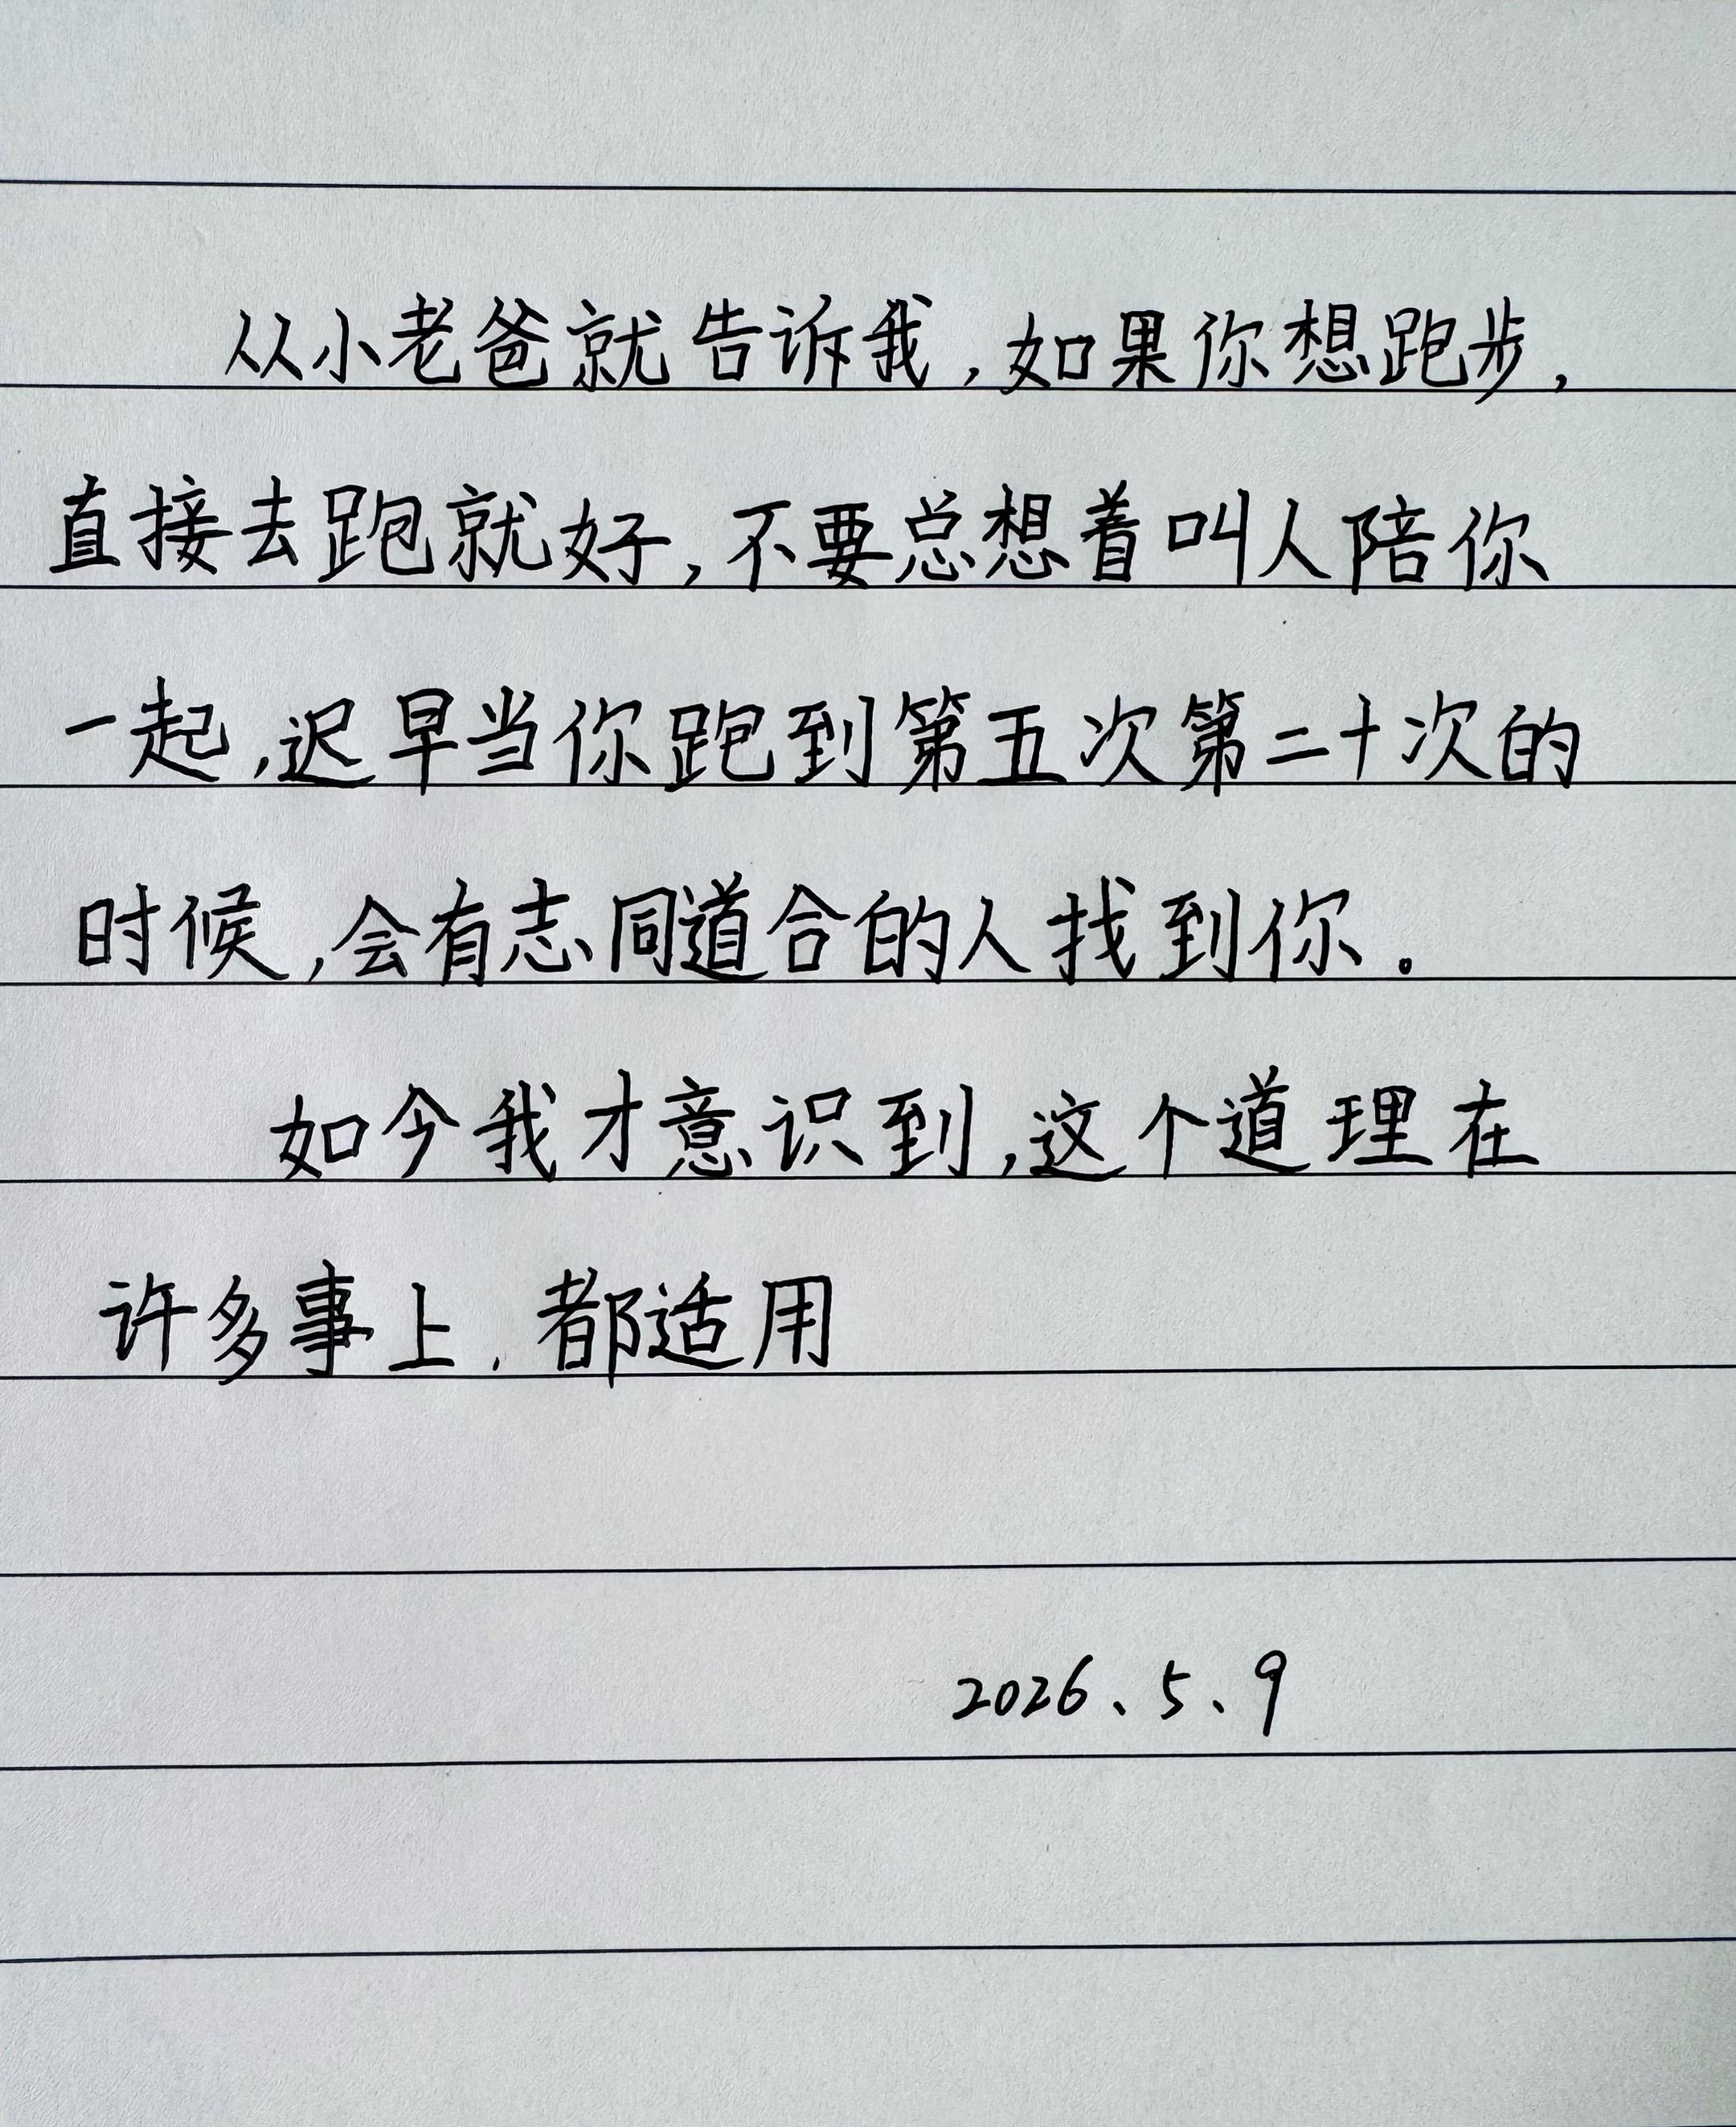 从小老爸就告诉我,如果你想跑步,
直接去跑就好,不要总想着叫人陪你
一起,迟早当你跑到第五次第二十次的
时候,会有志同道合的人找到你。
如今我才意识到,这个道理在
许多事上,都适用
2026、5、9